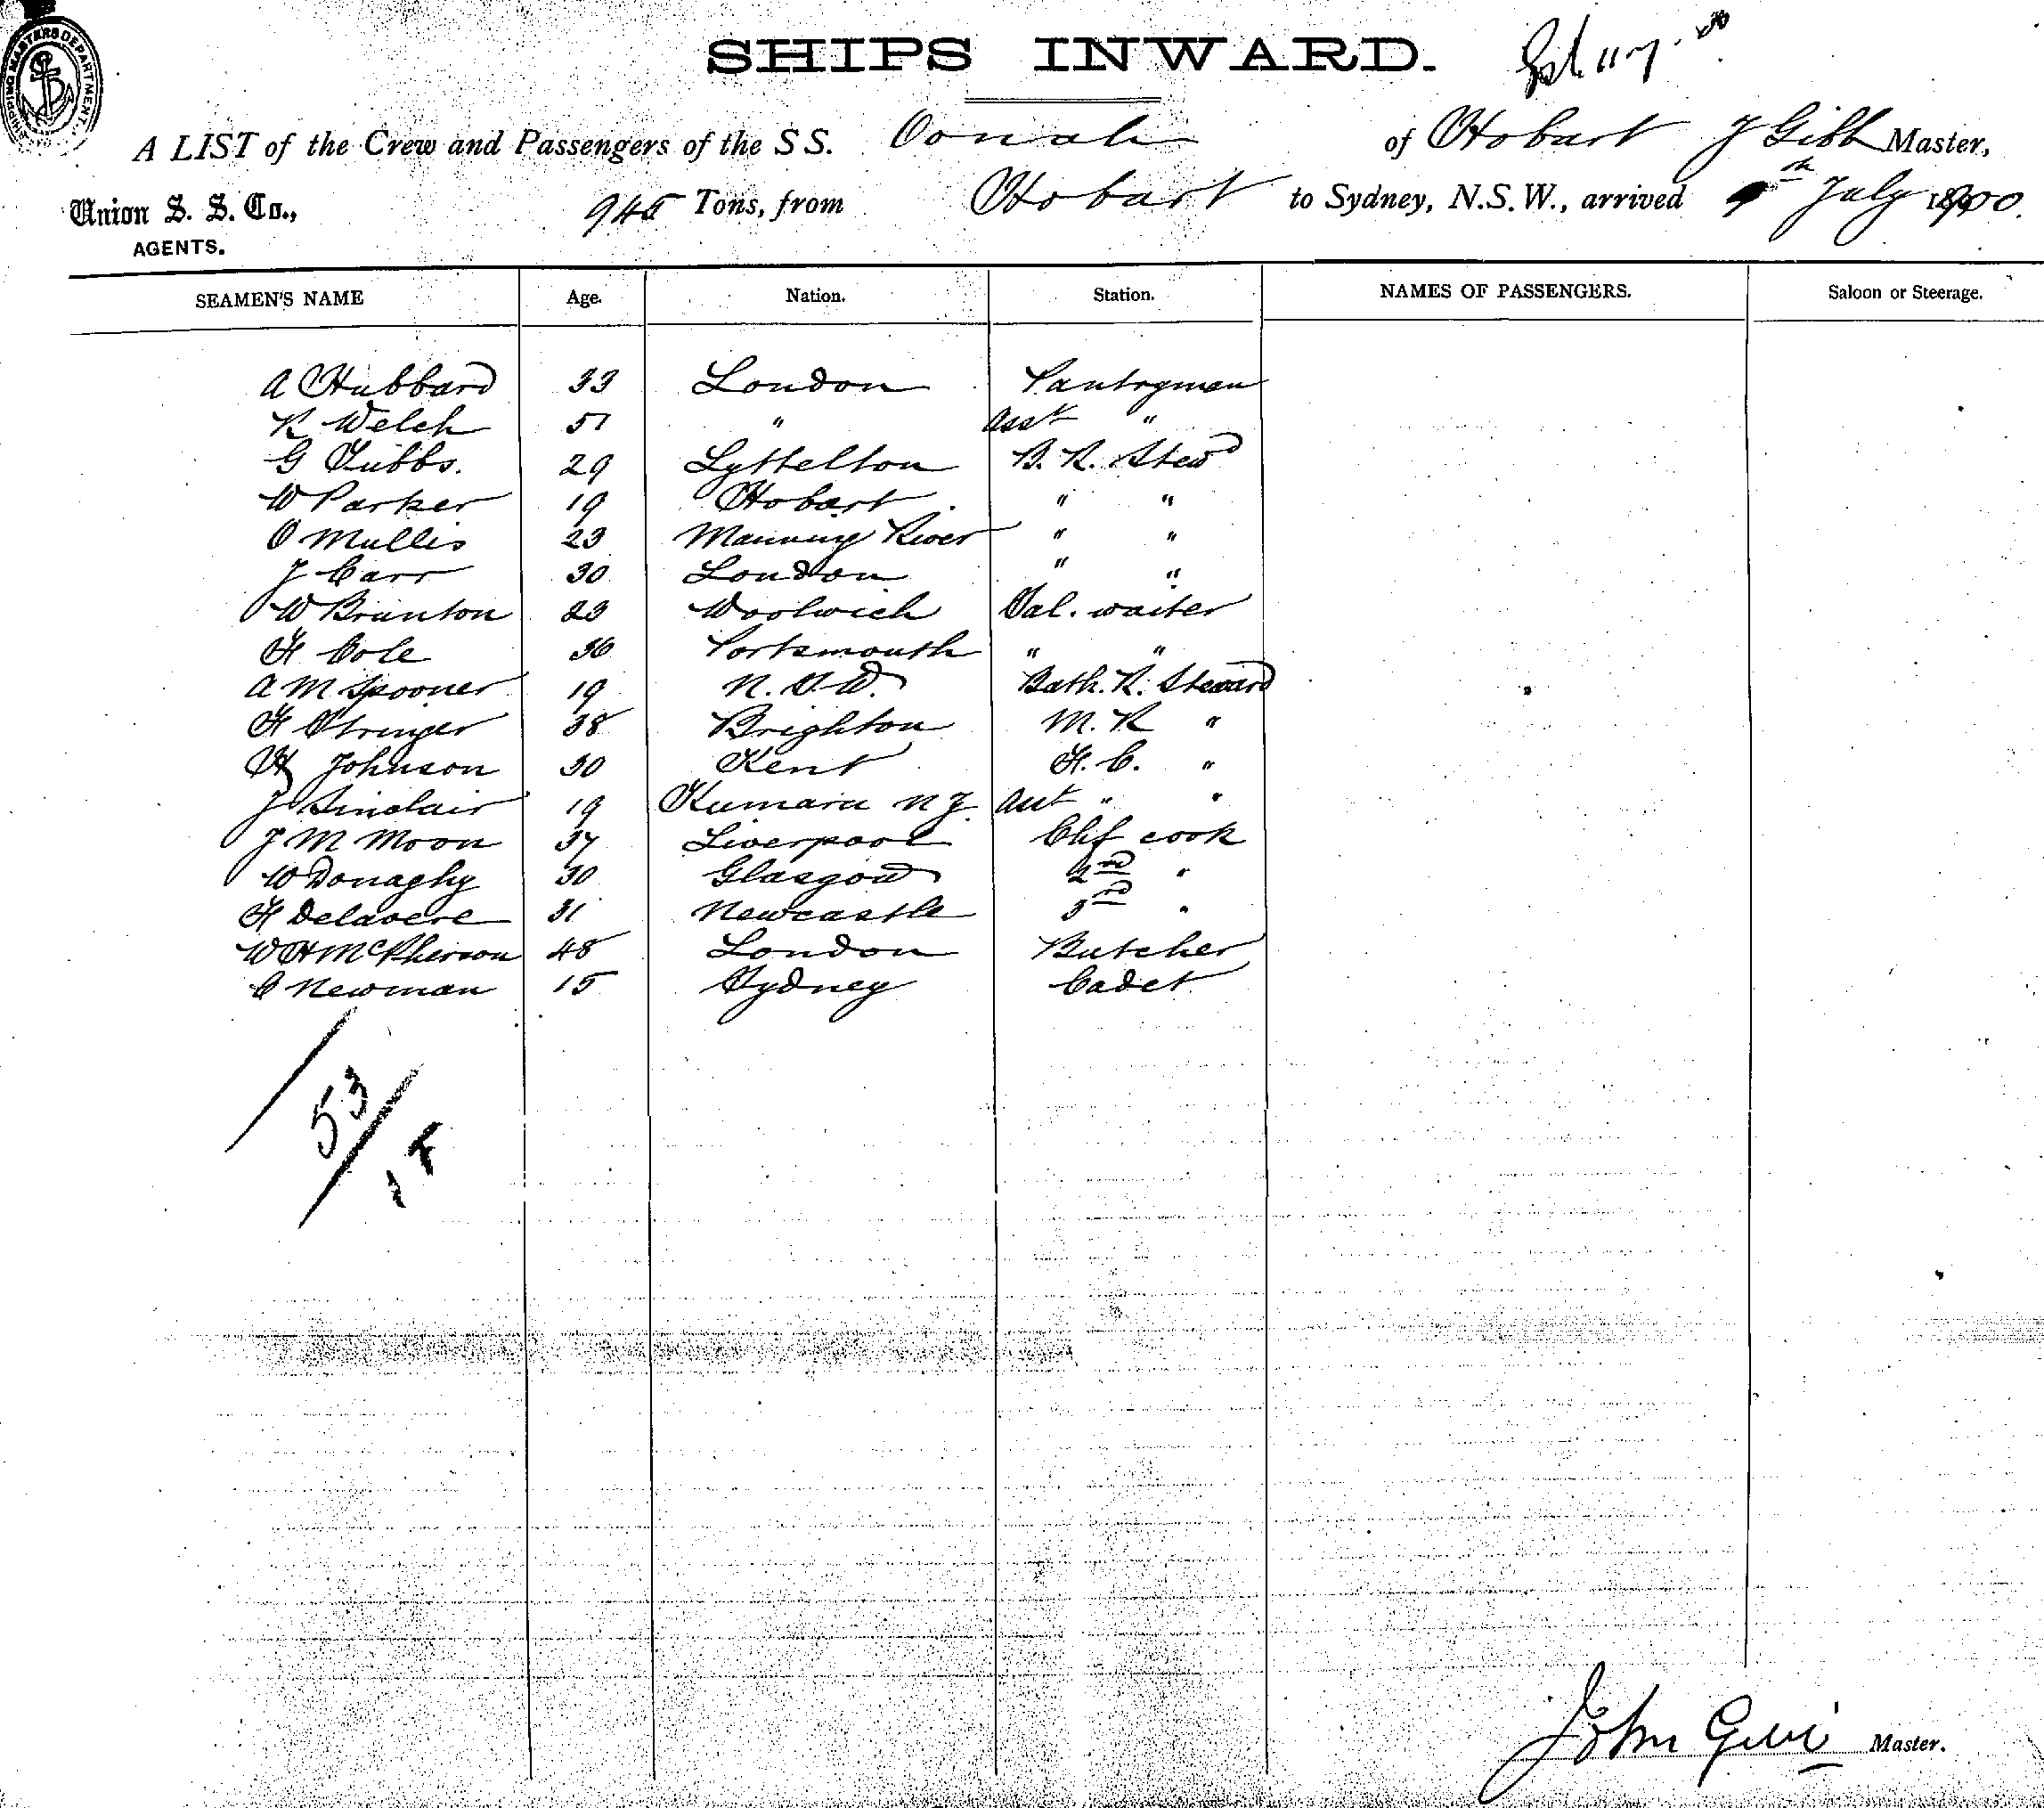 SHIPPING MASTERS DEPARTMENT
SHIPS INWARD.
A LIST of the Crew and Passengers of the S S. Oonah of Hobart J Gibb Master,
Union S. S. Co., 945 Tons, from Hobart to Sydney, N.S.W., arrived 9th July 1900.
AGENTS.
SEAMEN'S NAME Age. Nation. Station. NAMES OF PASSENGERS. Saloon or Steerage.
A Hubbard 33 London Pantryman
R Welch 51 " Asst "
G Tubbs. 29 Lyttelton B. R. Stewd
W Parker 19 Hobart " "
O Mullis 23 Manning River " "
J Carr 30 London " "
W Brunton 23 Woolwich Sal. waiter
H Cole 36 Portsmouth " "
A M Spooner 19 N. S. W. Bath. R. Steward
H Stringer 38 Brighton M. R "
H Johnson 30 Kent F. C. "
J Sinclair 19 Kumara N Z Asst " "
J M Moon 37 Liverpool Chf cook
W Donaghy 30 Glasgow 2nd "
H Delavere 31 Newcastle 3rd "
W H McPherson 48 London Butcher
C Newman 15 Sydney Cadet
53
John Gibb Master.